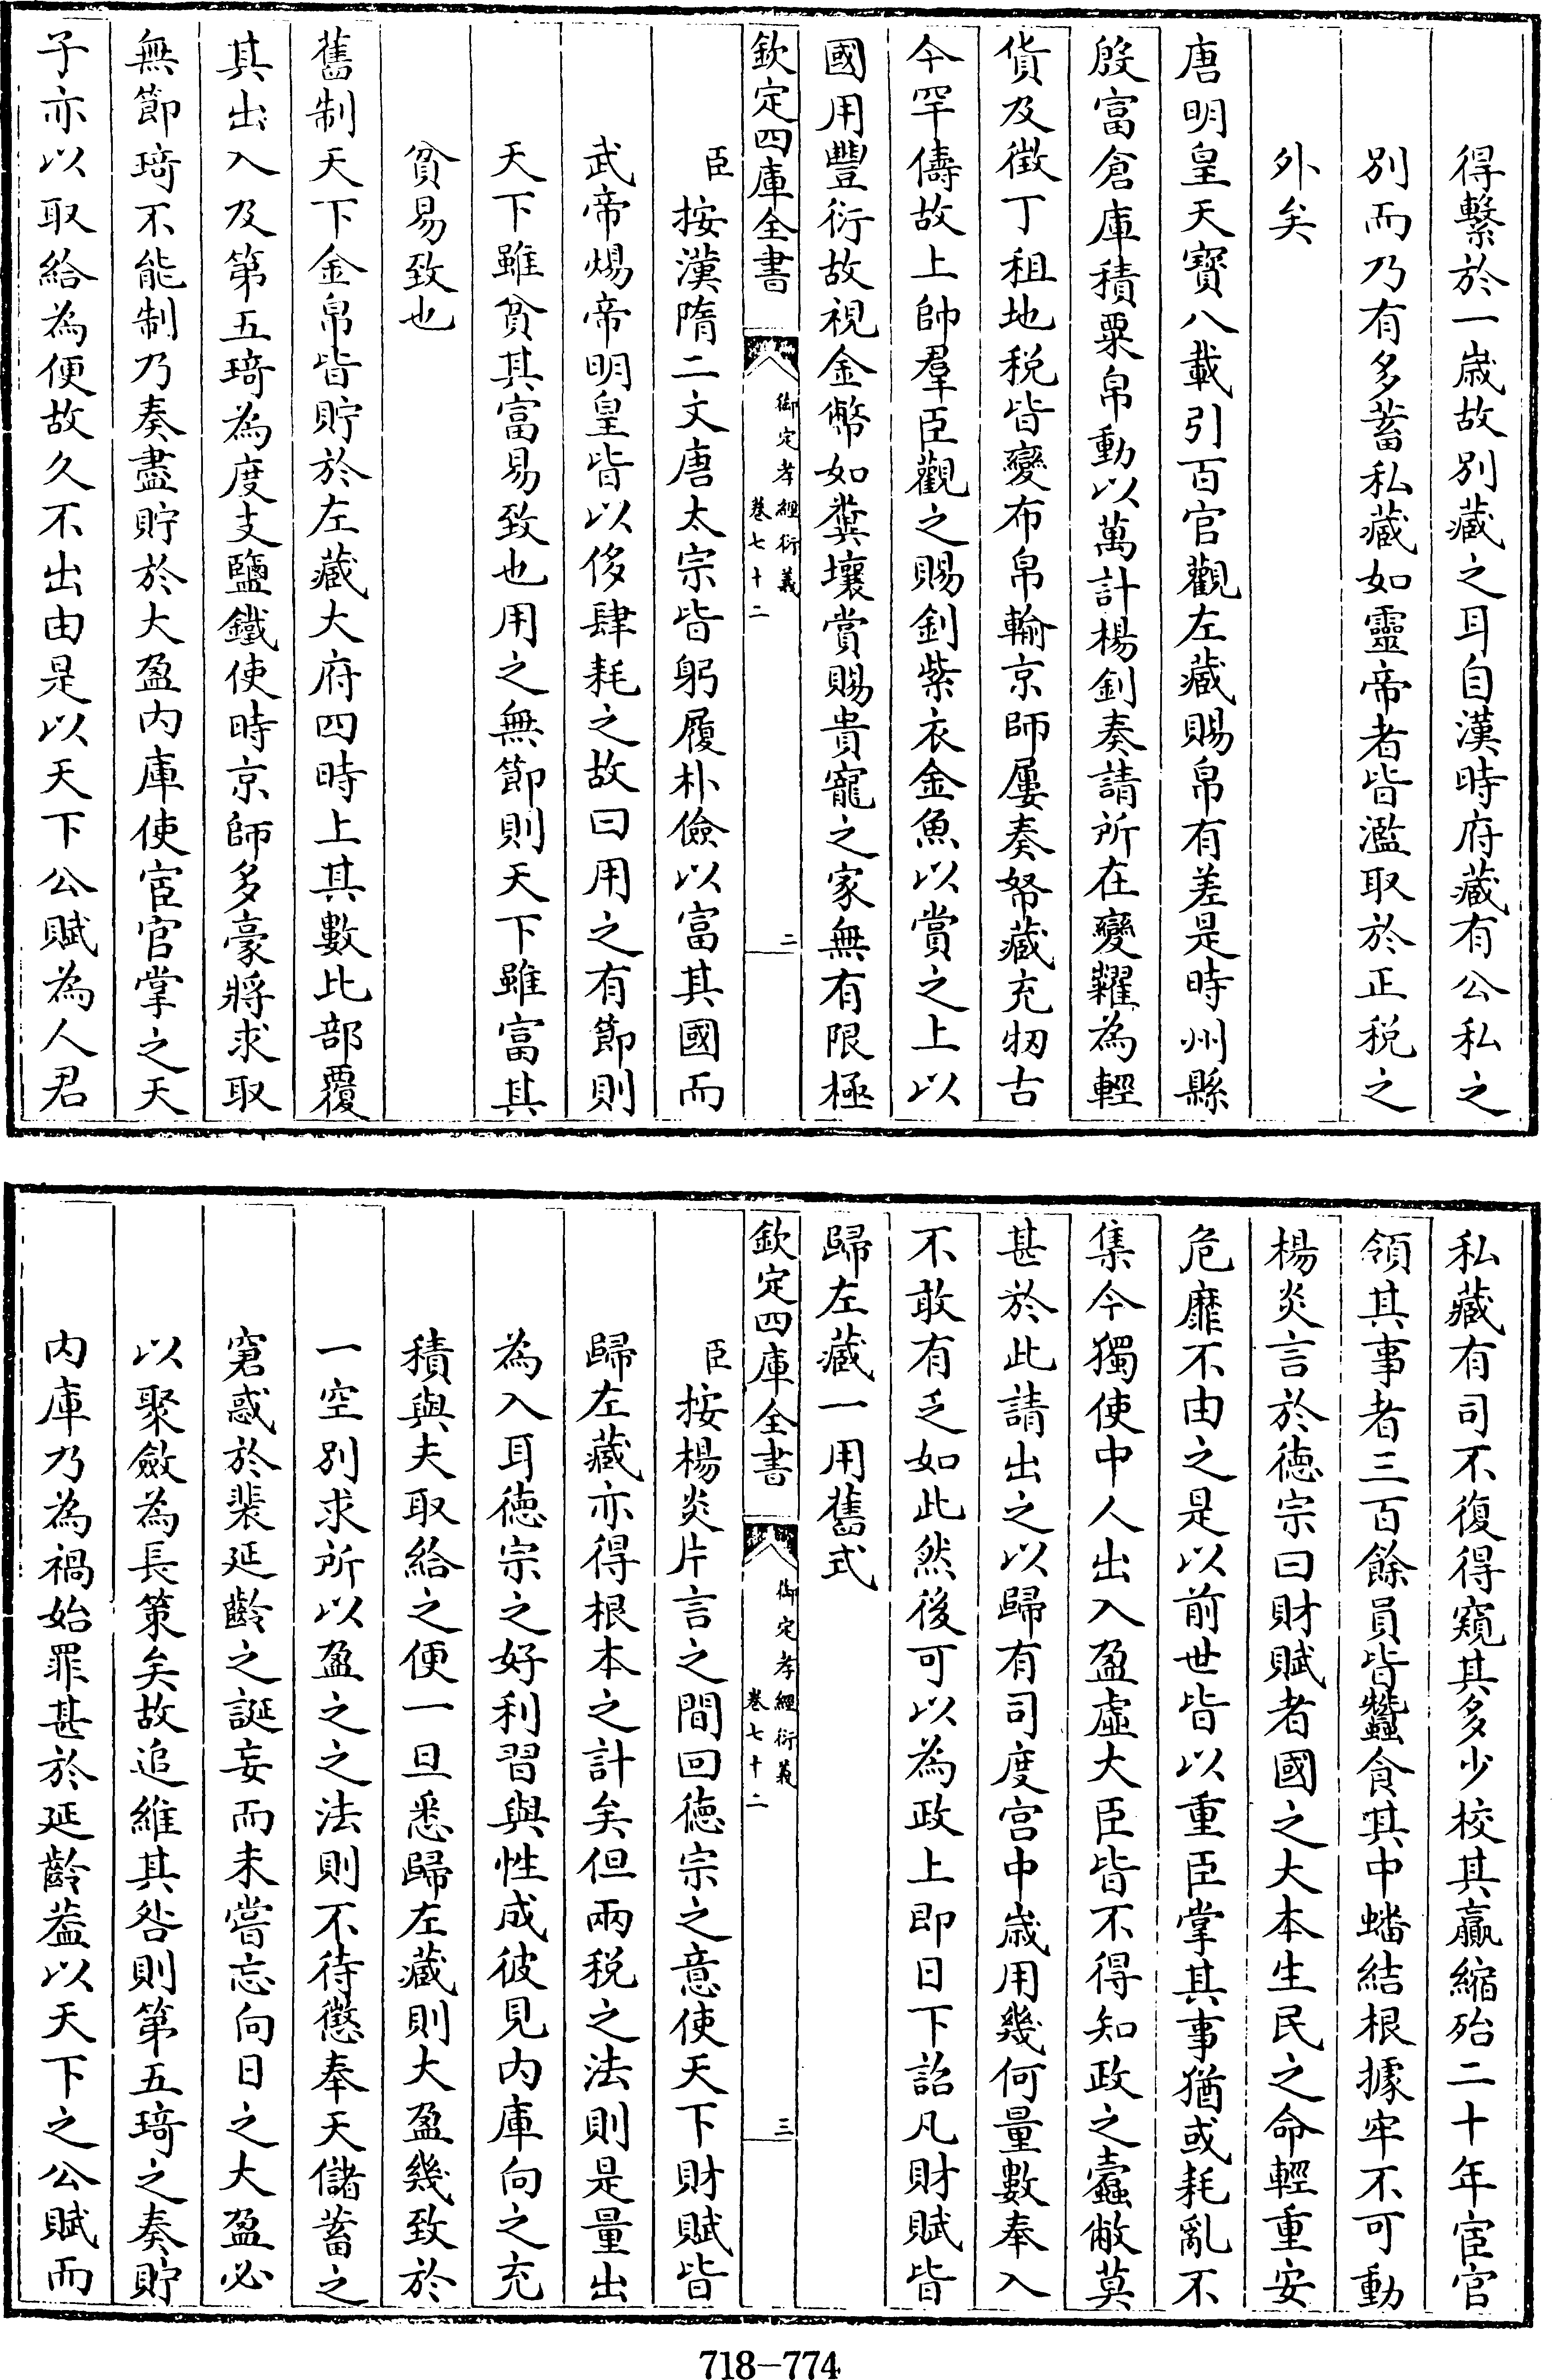 得繫於一歳故别藏之耳自漢時府藏有公私之
别而乃有多蓄私藏如靈帝者皆濫取於正税之
外矣
唐明皇天寳八載引百官觀左藏賜帛有差是時州縣
殷富倉庫積粟帛動以萬計楊釗奏請所在變糶為輕
貨及徴丁租地税皆變布帛輸京師屢奏帑藏充牣古
今罕儔故上帥羣臣觀之賜釗紫衣金魚以賞之上以
國用豐衍故視金幣如糞壤賞賜貴寵之家無有限極
欽定四庫全書
御定孝經衍義
卷七十二
二
臣按漢隋二文唐太宗皆躬履朴儉以富其國而
武帝煬帝明皇皆以侈肆耗之故曰用之有節則
天下雖貧其富易致也用之無節則天下雖富其
貧易致也
舊制天下金帛皆貯於左藏大府四時上其數比部覆
其出入及第五琦為度支鹽鐵使時京師多豪將求取
無節琦不能制乃奏盡貯於大盈内庫使宦官掌之天
子亦以取給為便故久不出由是以天下公賦為人君
私藏有司不復得窺其多少校其贏縮殆二十年宦官
領其事者三百餘員皆蠶食其中蟠結根據牢不可動
楊炎言於徳宗曰財賦者國之大本生民之命輕重安
危靡不由之是以前世皆以重臣掌其事猶或耗亂不
集今獨使中人出入盈虚大臣皆不得知政之蠹敝莫
甚於此請出之以歸有司度宫中歳用幾何量數奉入
不敢有乏如此然後可以為政上即日下詔凡財賦皆
歸左藏一用舊式
欽定四庫全書
御定孝經衍義
卷七十二
三
臣按楊炎片言之間回徳宗之意使天下財賦皆
歸左藏亦得根本之計矣但兩税之法則是量出
為入耳徳宗之好利習與性成彼見内庫向之充
積與夫取給之便一旦悉歸左藏則大盈幾致於
一空别求所以盈之之法則不待懲奉天儲蓄之
窘惑於裴延齡之誕妄而未嘗忘向日之大盈必
以聚斂為長策矣故追維其咎則第五琦之奏貯
内庫乃為禍始罪甚於延齡葢以天下之公賦而
718-774